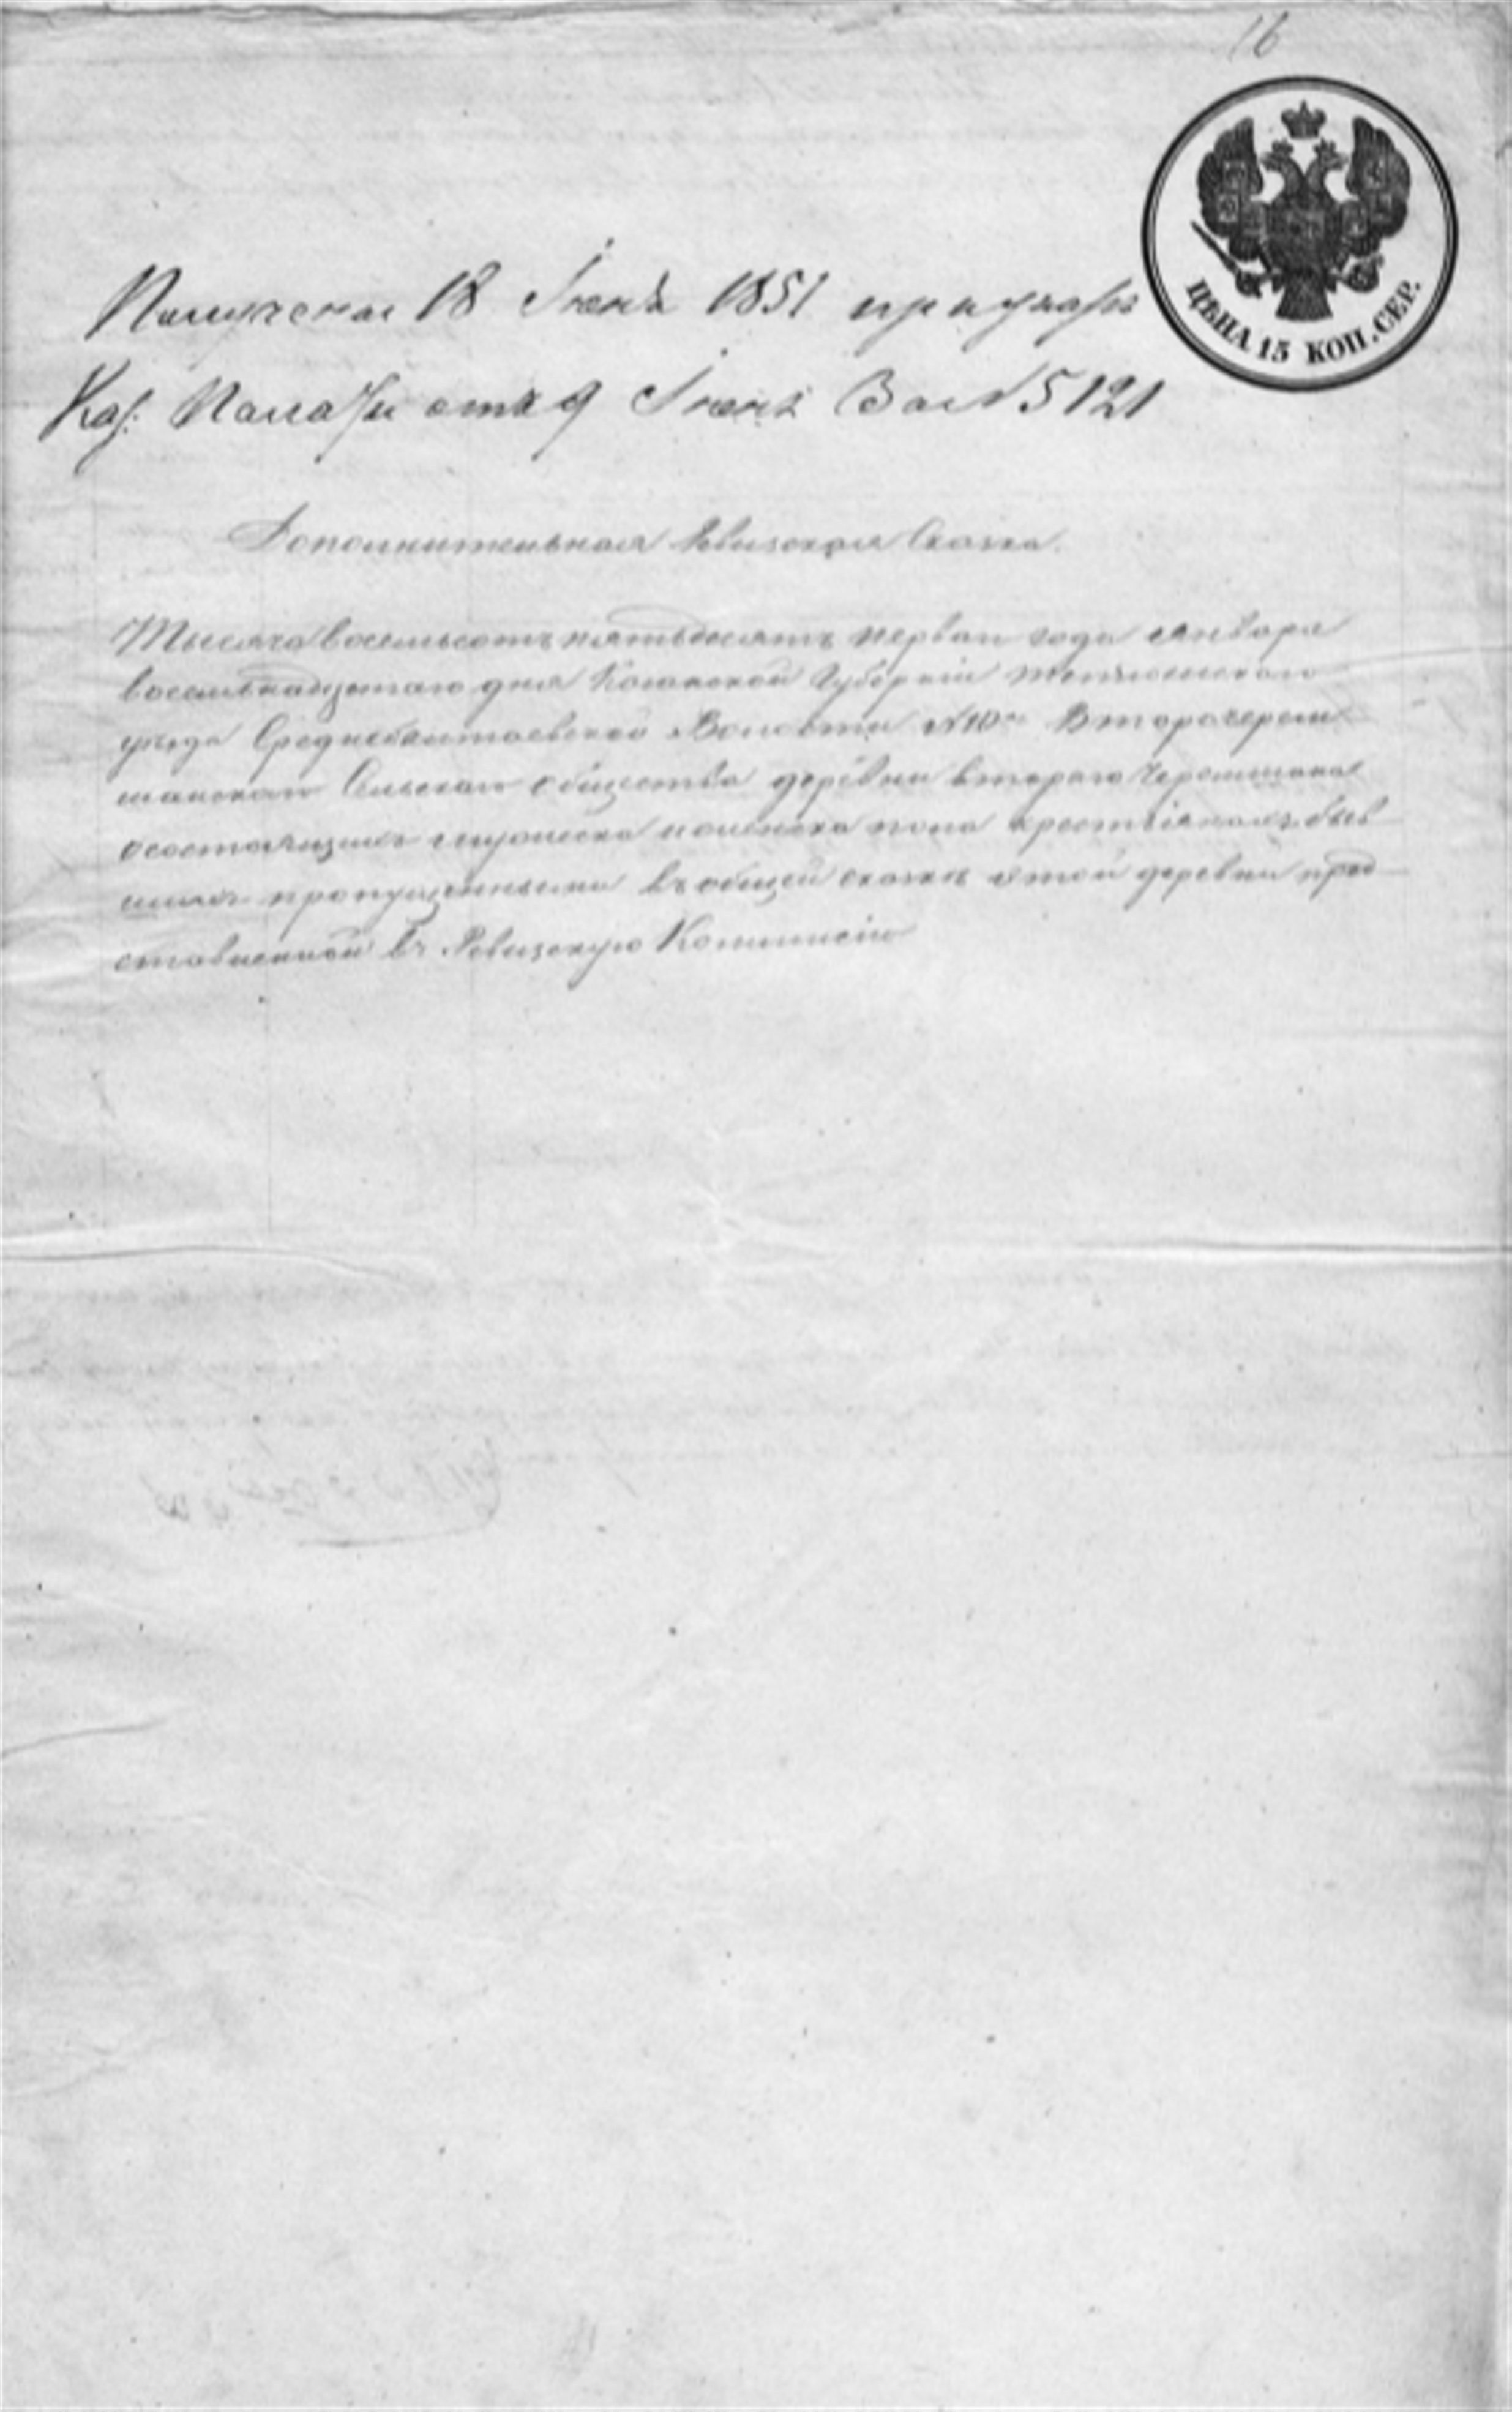 16
ЦѢНА 15 КОП. СЕР.
Получена 18 Іюня 1851 при указѣ
Каз. Палаты отъ 9 Іюня За № 5121
Дополнительная Ревизская Сказка.
Тысяча восемьсотъ пятьдесятъ перваго года января
восемнадцатаго дня Казанской Губерніи
уѣзда Волости №10го Вторачерем
шанскаго Сельскаго общества деревни втораго Черемшана
о состоящихъ мужеска и женска пола крестьянахъ быв
шихъ пропущенными въ общей сказкѣ этой деревни пред
ставленной въ Ревизскую Коммисію